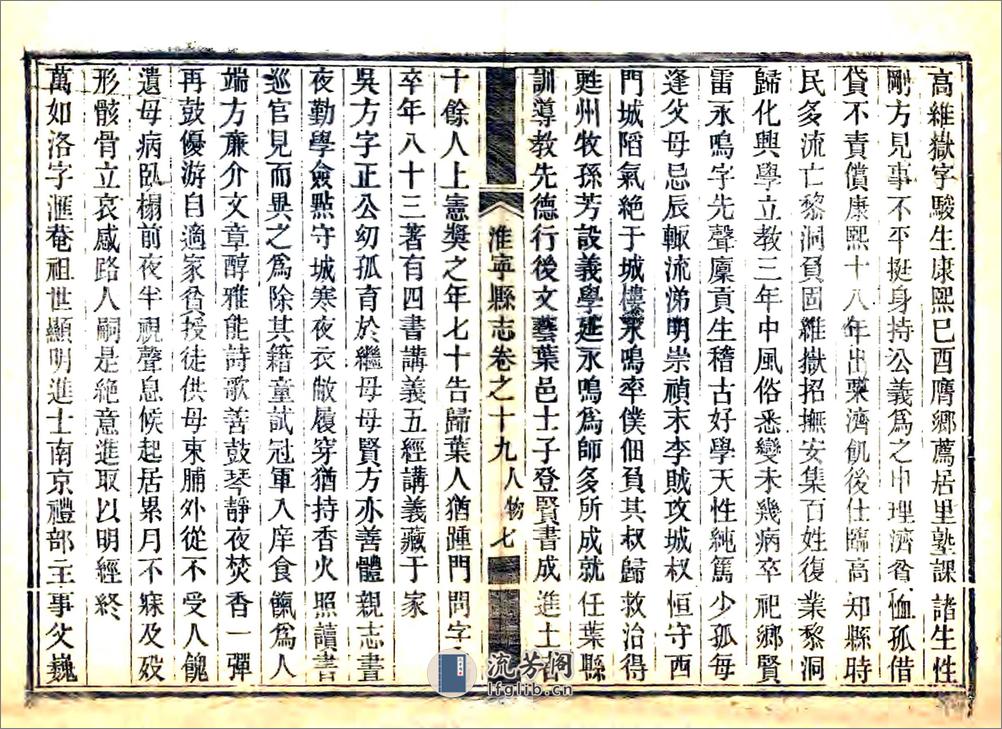 高維嶽字駿生康熙己酉膺鄉薦居里塾課諸生性
剛方見事不平挺身持公義爲之申理濟貧恤孤借
貸不責償康熙十八年出粟濟飢後仕臨高知縣時
民多流亡黎洞負固維嶽招撫安集百姓復業黎洞
歸化興學立教三年中風俗悉變未幾病卒祀鄉賢
雷永鳴字先聲廩貢生稽古好學天性純篤少孤每
逢父母忌辰輙流涕明崇禎末李賊攻城叔恒守西
門城陷氣絕于城樓永鳴率僕佃負其叔歸救治得
甦州牧孫芳設義學延永鳴爲師多所成就任葉縣
訓導教先德行後文藝葉邑士子登賢書成進士者
淮寧縣志卷之十九 人物 七
十餘人上憲獎之年七十告歸葉人猶踵門問字
卒年八十三著有四書講義五經講義藏于家
吳方字正公幼孤育於繼母母賢方亦善體親志晝
夜勤學僉點守城寒夜衣敝履穿猶持香火照讀書
巡官見而異之爲除其籍童試冠軍入庠食餼爲人
端方廉介文章醇雅能詩歌善鼓琴靜夜焚香一彈
再鼓優游自適家貧授徒供母束脯外從不受人餽
遺母病臥榻前夜半視聲息候起居累月不寐及歿
形骸骨立哀感路人嗣是絕意進取以明經終
萬如洛字滙菴祖世顯明進士南京禮部主事父巍
流芳阁
lfglib.cn